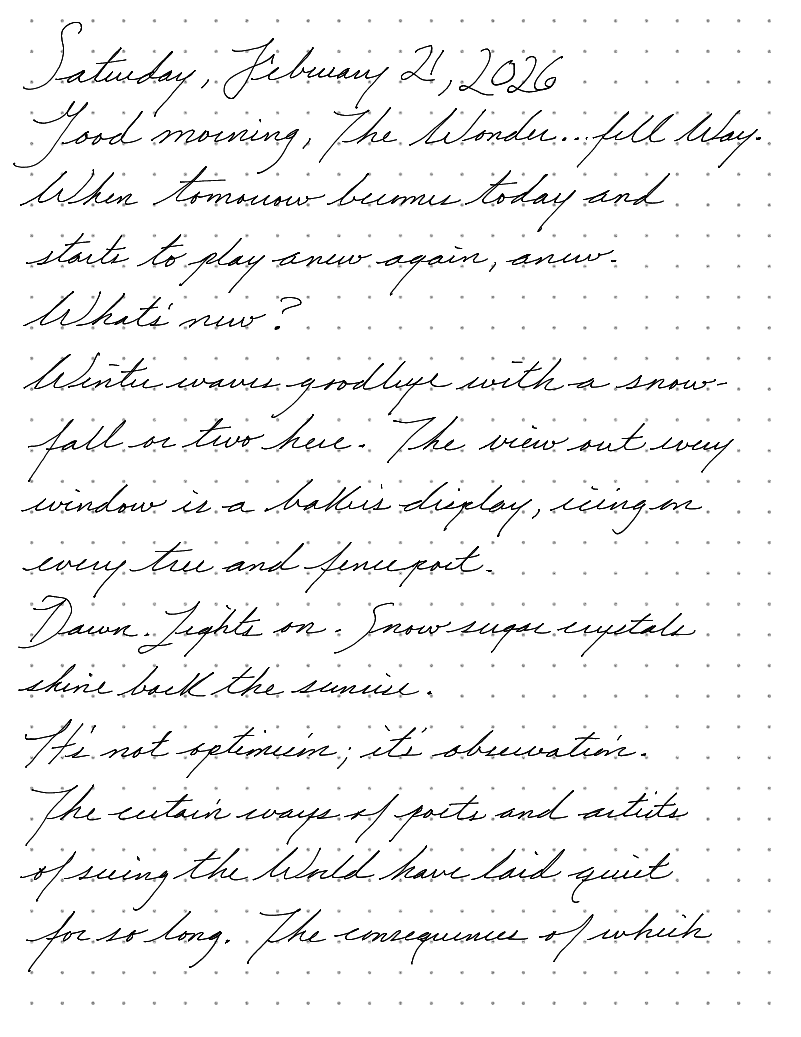 Saturday, February 21, 2026
Good morning, The Wonder...full Way.
When tomorrow becomes today and
starts to play anew again, anew.
What's new?
Winter waves goodbye with a snow-
fall or two here. The view out every
window is a baker's display, icing on
every tree and fencepost.
Dawn. Lights on. Snow sugar crystals
shine back the sunrise.
It's not optimism; it's observation.
The certain ways of poets and artists
of seeing the World have laid quiet
for so long. The consequences of which